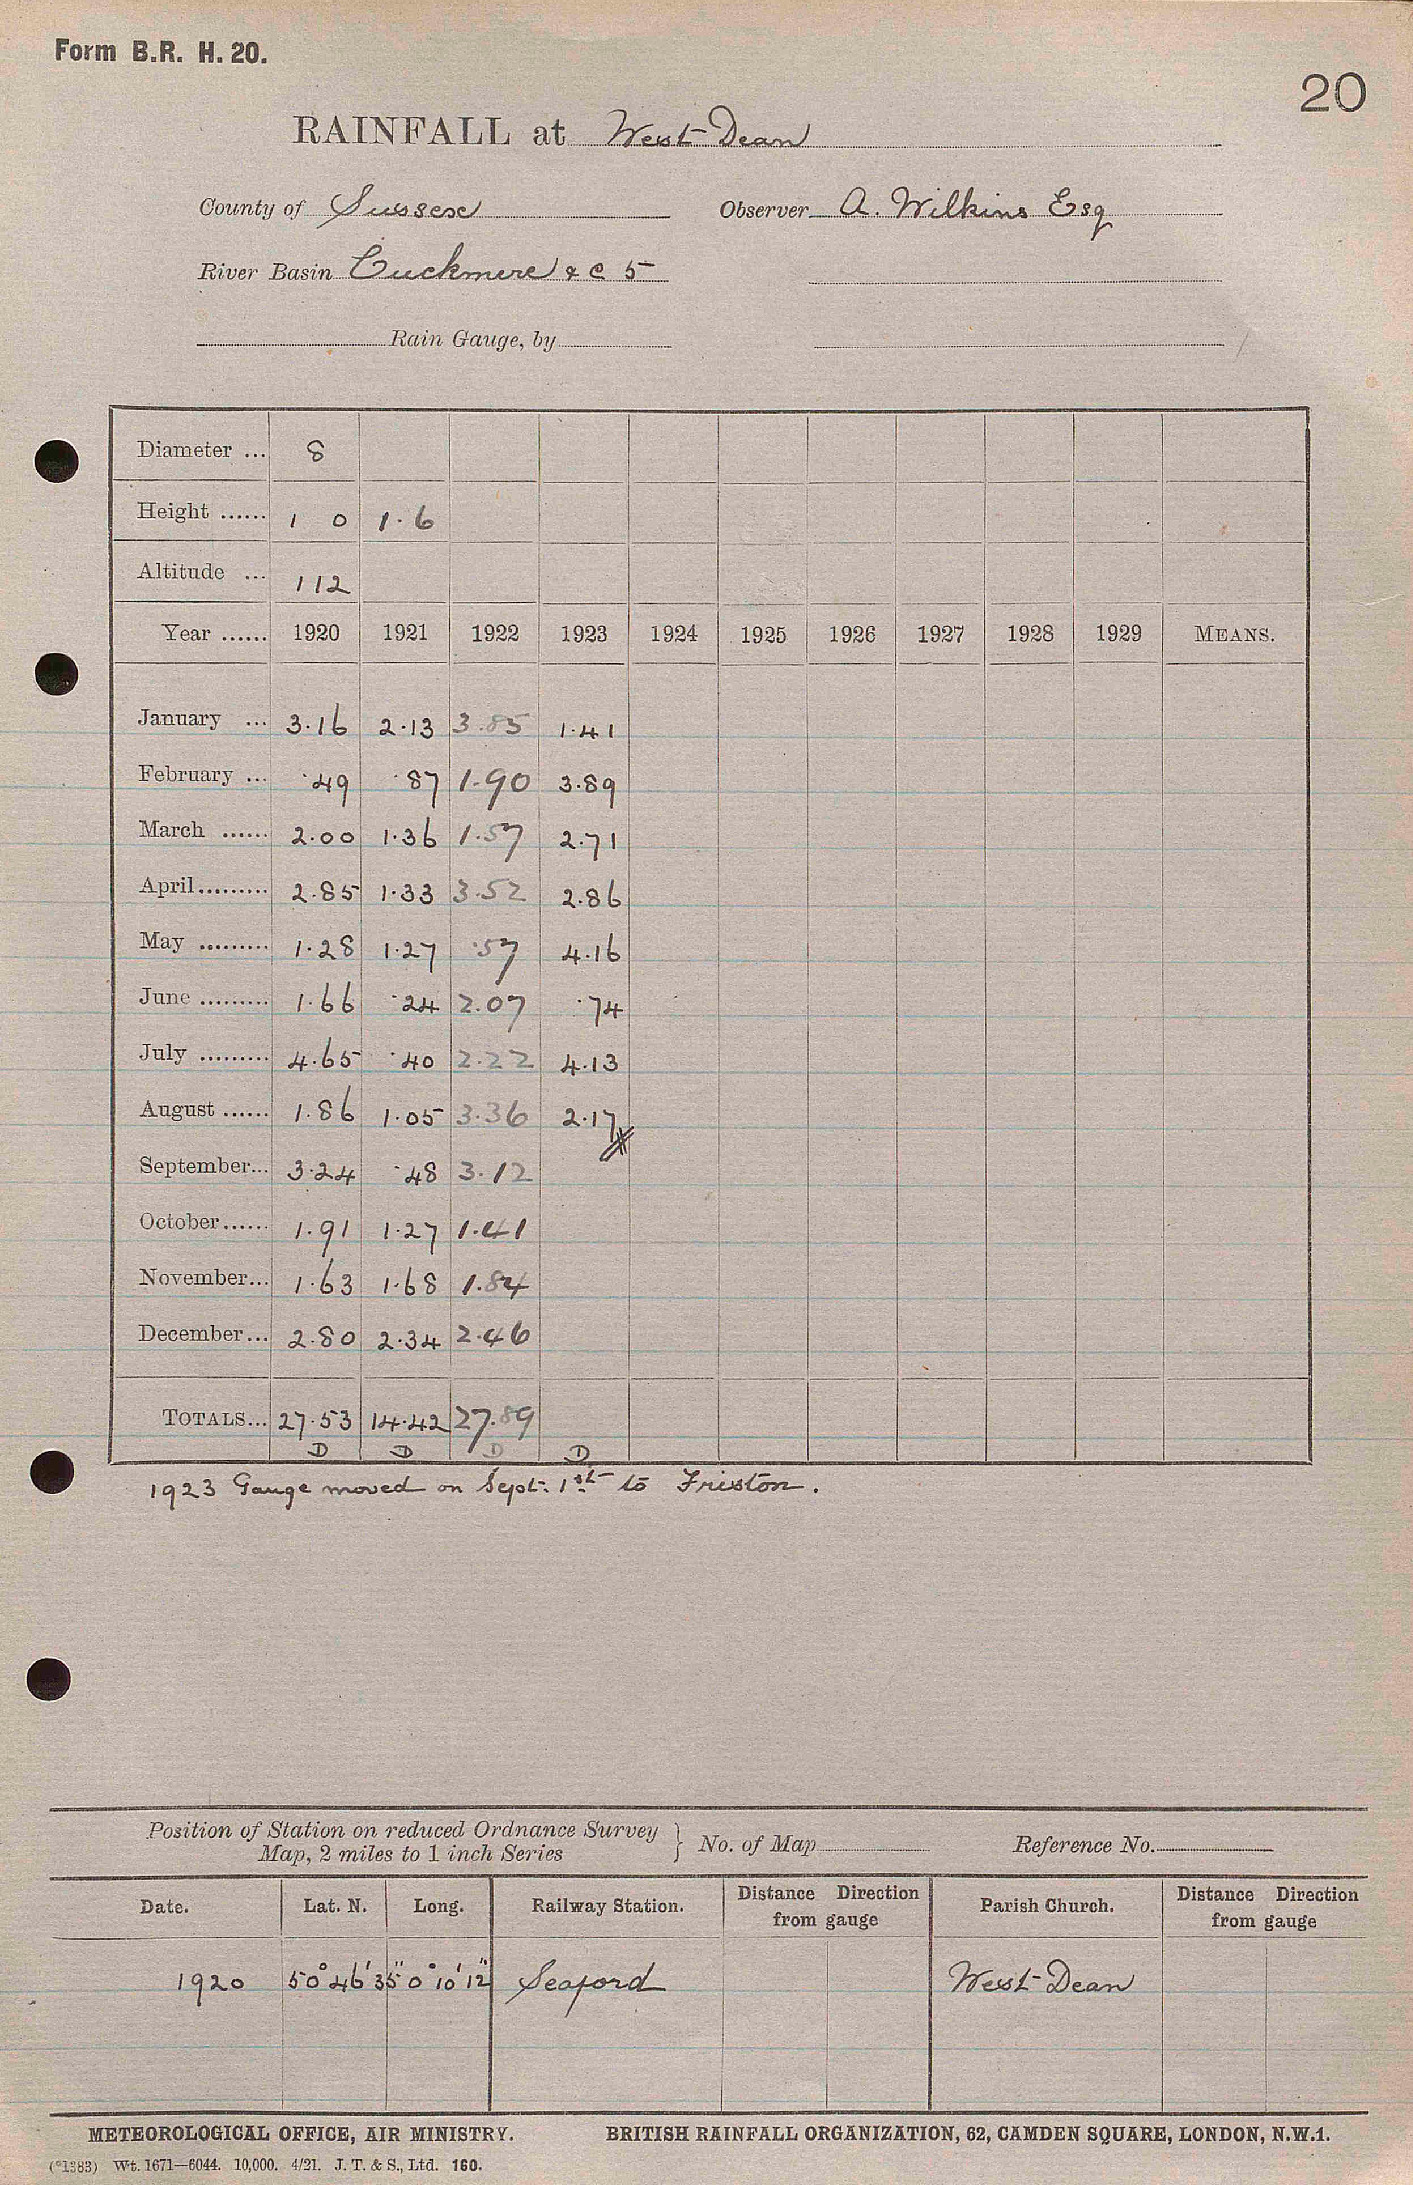 Form B.R. H. 20.
20
RAINFALL at West Dean
County of Sussex Observer A. Wilkins Esq
River Basin Cuckmere & C 5
Rain Gauge, by
Diameter ... 8
Height ...... 1 0 1.6
Altitude ... 112
Year ...... 1920 1921 1922 1923 1924 1925 1926 1927 1928 1929 MEANS.
January ... 3.16 2.13 3.85 1.41
February ... .49 .87 1.90 3.89
March ...... 2.00 1.36 1.57 2.71
April......... 2.85 1.33 3.52 2.86
May ......... 1.28 1.27 .57 4.16
June ......... 1.66 .24 2.07 .74
July ......... 4.65 .40 2.22 4.13
August ...... 1.86 1.05 3.36 2.17
September... 3.24 .48 3.12
October...... 1.91 1.27 1.41
November... 1.63 1.68 1.84
December... 2.80 2.34 2.46
TOTALS... 27.53 14.42 27.89
D D D D
1923 Gauge moved on Sept. 1st to Friston.
Position of Station on reduced Ordnance Survey
Map, 2 miles to 1 inch Series } No. of Map Reference No.
Date. Lat. N. Long. Railway Station. Distance Direction from gauge Parish Church. Distance Direction from gauge
1920 50° 46' 35" 0° 10' 12" Seaford West Dean
METEOROLOGICAL OFFICE, AIR MINISTRY. BRITISH RAINFALL ORGANIZATION, 62, CAMDEN SQUARE, LONDON, N.W.1.
(*1383) Wt. 1671—6044. 10,000. 4/21. J. T. & S., Ltd. 160.